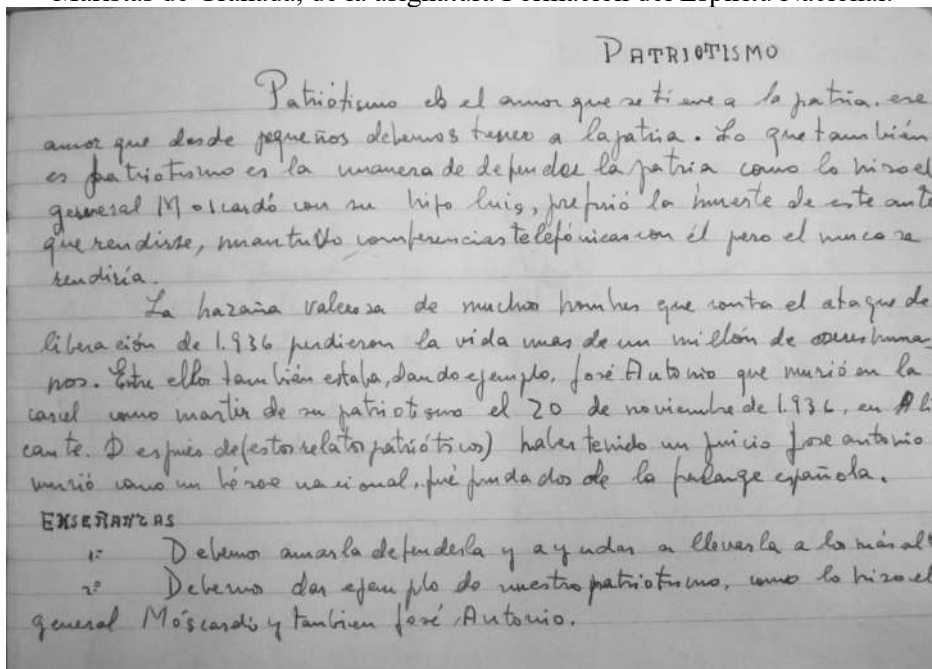 Maristas de Granada, de la asignatura Formación del Espíritu Nacional.
PATRIOTISMO
Patriotismo es el amor que se tiene a la patria, ese
amor que desde pequeños debemos tener a la patria. Lo que también
es patriotismo es la manera de defender la patria como lo hizo el
general Moscardó con su hijo luis, prefirió la muerte de este ante
que rendirse, mantuvo conferencias telefónicas con él pero el nunca se
rendiría.
La hazaña valerosa de muchos hombres que contra el ataque de
liberación de 1.936 perdieron la vida mas de un millón de seres huma-
nos. Entre ellos también estaba, dando ejemplo, José Antonio que murió en la
carcel como martir de su patriotismo el 20 de noviembre de 1.936, en Ali
cante. Después de (estos relatos patrióticos) haber tenido un juicio Jose antonio
murió como un héroe nacional, fué fundador de la falange española.
ENSEÑANZAS
1º Debemos amarla defenderla y ayudar a llevarla a lo más alt
2º Debemos dar ejemplo de nuestro patriotismo, como lo hizo el
general Móscardó y tambien José Antonio.